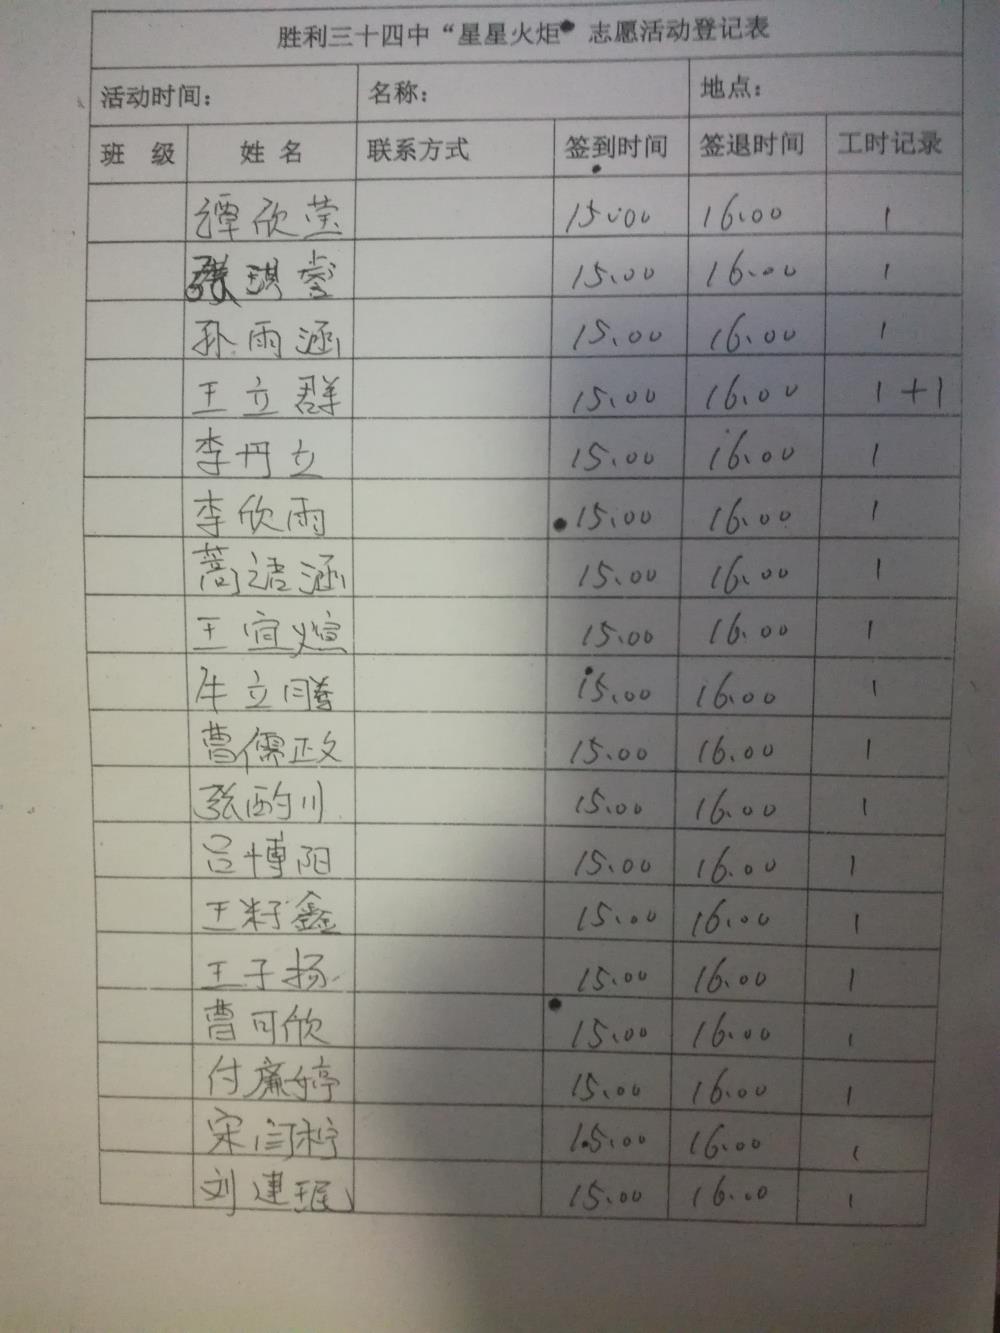 胜利三十四中“星星火炬” 志愿活动登记表
活动时间： 名称： 地点：
班 级 姓 名 联系方式 签到时间 签退时间 工时记录
谭欣莹 15:00 16.00 1
张琪 15.00 16.00 1
孙雨涵 15.00 16.00 1
王立群 15.00 16.00 1+1
李丹立 15.00 16.00 1
李欣雨 15.00 16.00 1
蔄诺涵 15.00 16.00 1
王宜煊 15.00 16.00 1
牛立腾 15.00 16.00 1
曹儒政 15.00 16.00 1
张酌川 15.00 16.00 1
吕博阳 15.00 16.00 1
王籽鑫 15.00 16.00 1
王子扬 15.00 16.00 1
曹可欣 15.00 16.00 1
付廉婷 15.00 16.00 1
宋闫柠 15.00 16.00 1
刘建珉 15.00 16.00 1